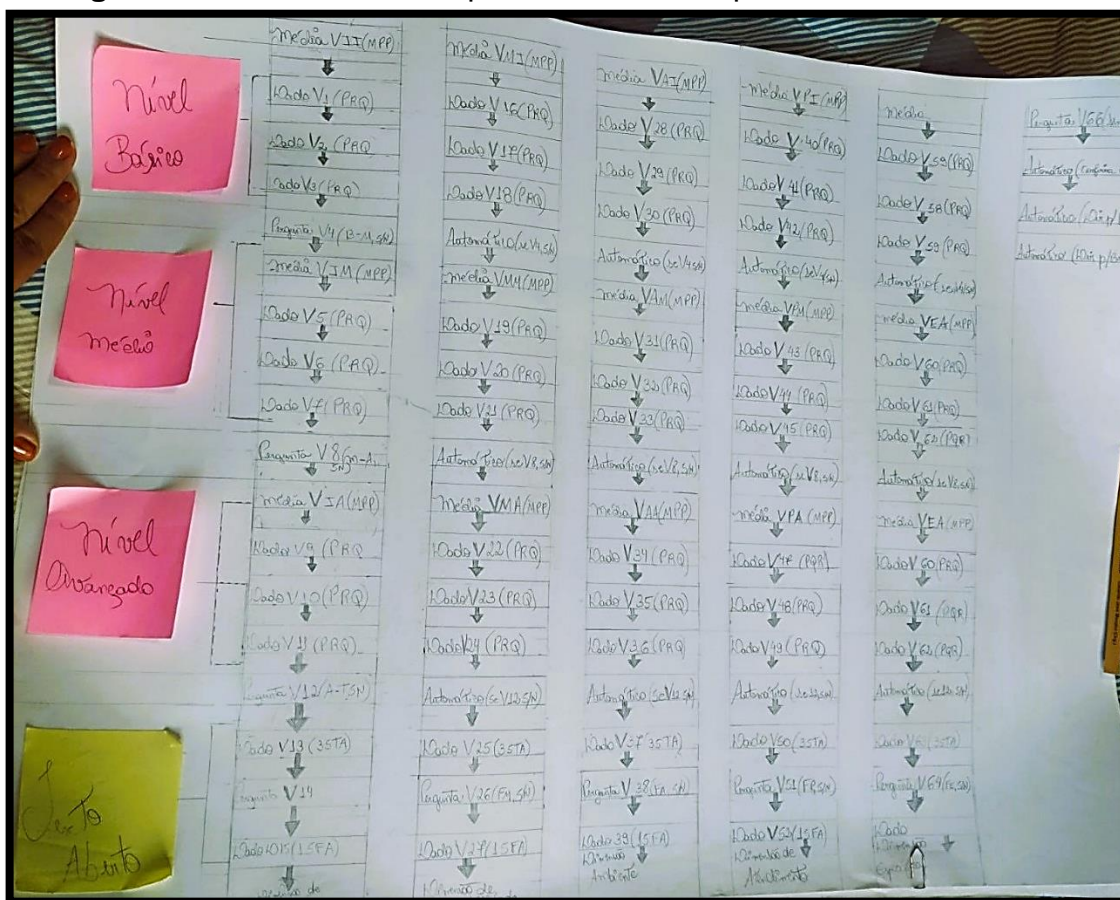 Nível
Básico
Nível
Médio
Nível
Avançado
Texto
Aberto
média VII(MPP)
Dado V1(PRQ)
Dado V2 (PRQ)
Dado V3(PRQ)
Pergunta V4 (B-M,SN)
média VIM(MPP)
Dado V5(PRQ)
Dado V6 (PRQ)
Dado V7(PRQ)
Pergunta V8(m-A,
SN)
média VIA(MPP)
Dado V9 (PRQ
Dado V10(PRQ)
Dado V11 (PRQ)
Pergunta V12(A-T,SN)
Dado V13 (35TA)
Pergunta V14
Dado D15(15FA)
média VMI(MPP)
Dado V16(PRQ)
Dado V17(PRQ)
Dado V18(PRQ)
Automático(seV4,SN)
média VMM(MPP)
Dado V19(PRQ)
Dado V20 (PRQ)
Dado V21 (PRQ)
Automático(seV8,SN)
Média VMA(MPP)
Dado V22(PRQ)
Dado V23(PRQ)
Dado V24 (PRQ)
Automático(seV12,SN)
Dado V25(35TA)
Pergunta V26(FM,SN)
Dado V27(15FA)
Dimensão de
média VAI(MPP)
Dado V28(PRQ)
Dado V29(PRQ)
Dado V30(PRQ)
Automático(seV4,SN)
média VAM(MPP)
Dado V31(PRQ)
Dado V32(PRQ)
Dado V33(PRQ)
Automático(seV8,SN)
média VAA(MPP)
Dado V34(PRQ)
Dado V35(PRQ)
Dado V36(PRQ)
Automático(seV12,SN)
Dado V37(35TA)
Pergunta V38(FA,SN)
Dado 39(15FA)
Dimensão
Ambiente
média VPI(MPP)
Dado V40(PRQ)
Dado V41(PRQ)
Dado V42(PRQ)
Automático(seV4,SN)
média VPM(MPP)
Dado V43(PRQ)
Dado V44(PRQ)
Dado V45(PRQ)
Automático(seV8,SN)
média VPA(MPP)
Dado V47 (PQR)
Dado V48(PRQ)
Dado V49(PRQ)
Automático(se12,SN)
Dado V50(35TA)
Pergunta V51(FP,SN)
Dado V52(15FA)
Dimensão de
Atendimento
média
Dado V59(PRQ)
Dado V58(PRQ)
Dado V59(PRQ)
média VEA(MPP)
Dado V60(PRQ)
Dado V61(PRQ)
Dado V62(PQR)
Automático(seV8,SN)
média VEA(MPP)
Dado V60(PRQ)
Dado V61(PQR)
Dado V62(PQR)
Automático(se12,SN)
Dado V63(35TA)
Pergunta V64(FE,SN)
Dado
Dimensão
Pergunta V66
Automático
Automático
Automático